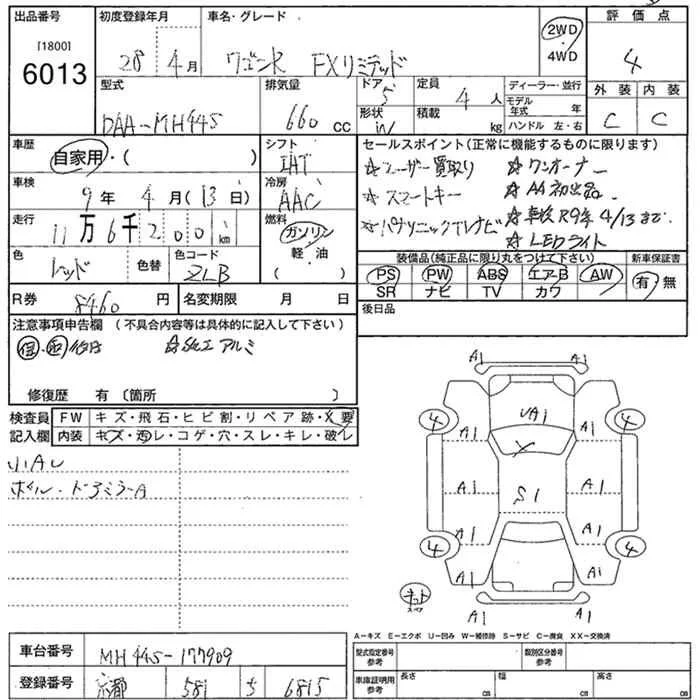 出品番号 初度登録年月 車名・グレード 2WD 評価点
[1800] 28 4月 ワゴンR FXリミテッド 4WD 4
6013
型式 排気量 ドア 5 定員 4人 ディーラー・並行 外装 内装
DAA-MH44S 660cc 形状 積載 kg モデル年式 年 C C
ハンドル 左・右
車歴 自家用・( ) シフト IAT セールスポイント(正常に機能するものに限ります)
☆ユーザー買取り ☆ワンオーナー
車検 9年 4月(13日) 冷房 AAC ☆スマートキー ☆AA初出品
走行 11万6千200km 燃料 ガソリン・軽・油 ( ) ☆パナソニックTVナビ ☆車検R9年4/13まで
☆LEDライト
色 レッド 色替 色コード ZLB 装備品(純正品に限り丸をつけて下さい) 新車保証書
PS PW ABS エアB AW 有・無
SR ナビ TV カワ
R券 8460円 名変期限 月 日 後日品
注意事項申告欄 (不具合内容等は具体的に記入して下さい)
☆純正アルミ
修復歴 有 〔箇所 〕
検査員 FW キズ・飛石・ヒビ割・リペア跡・X要
記入欄 内装 キズ・汚レ・コゲ・穴・スレ・キレ・破レ
小AU
ホイル・ドアミラーA
A1 A1
4 UA1 4
A1 X A1
A1 S1 A1
A1 A1
4 4
A1 A1
キット
スペア
A1 A1
A-キズ E-エクボ U-凹み W-補修跡 S-サビ C-腐食 XX-交換済
車台番号 MH44S-177909 型式指定番号 参考 類別区分番号 参考
登録番号 京都 581 6815 車庫証明用 参考 長さ cm 幅 cm 高さ cm